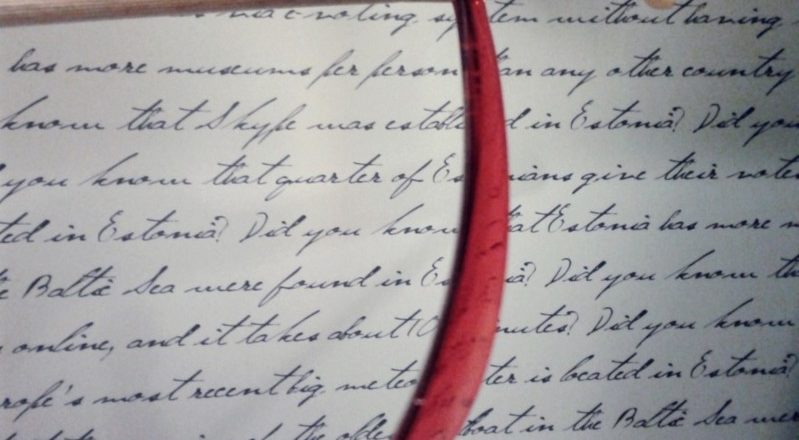 via e-voting system without having
has more museums per person than any other country
know that Skype was established in Estonia? Did you
you know that quarter of Estonians give their votes
ted in Estonia? Did you know that Estonia has more m
e Baltic Sea were found in Estonia? Did you know th
online, and it takes about 10 minutes? Did you know
rope's most recent big meteo ter is located in Estonia?
the olde boat in the Baltic Sea wer